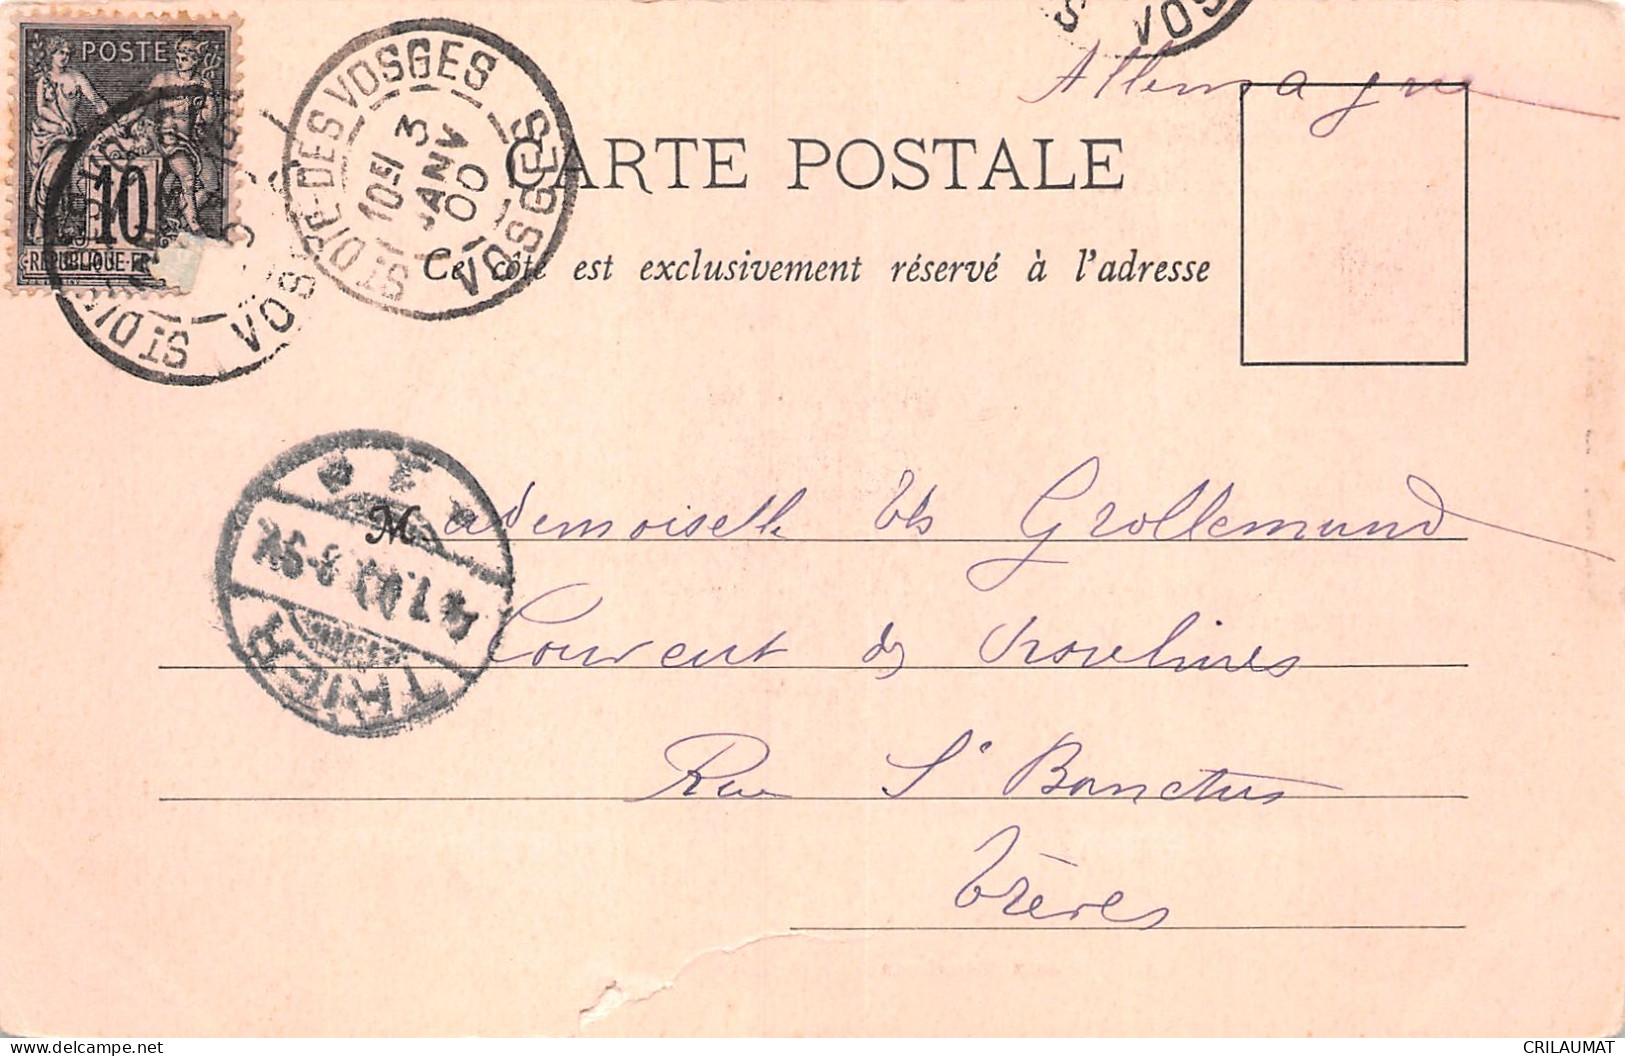 POSTE
10
REPUBLIQUE FR
ST DIÉ-DES VOSGES
10E
3
JANV
00
VOSGES
ST DIÉ
VOSGES
VOSG
Allemagne
CARTE POSTALE
Ce côté est exclusivement réservé à l'adresse
Mademoiselle Grollemund
Couvent des Ursulines
Rue St Banctus
Trèves
TRIER
CRILAUMAT